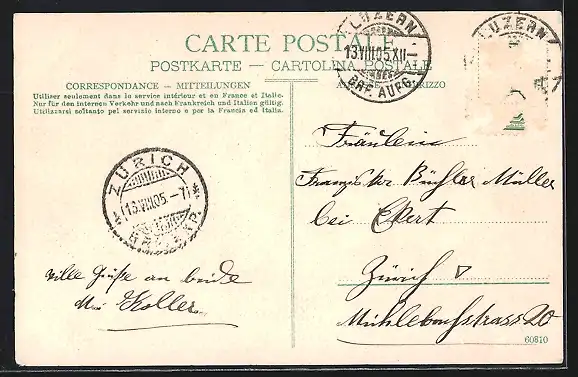 CARTE POSTALE
POSTKARTE — CARTOLINA POSTALE
CORRESPONDANCE — MITTEILUNGEN
Utiliser seulement dans le service intérieur et en France et Italie.
Nur für den internen Verkehr und nach Frankreich und Italien gültig.
Utilizzarsi soltanto pel servizio interno e per la Francia ed Italia.
LUZERN
13.VIII.05.XII—
BRF. AUFG.
LUZERN
RIZZO
ZÜRICH
13.VIII.05.—7
Fräulein
Bühler Müller
bei
Zürich
Mühlebachstrasse 20
viele Grüße an beide
Koller
60810